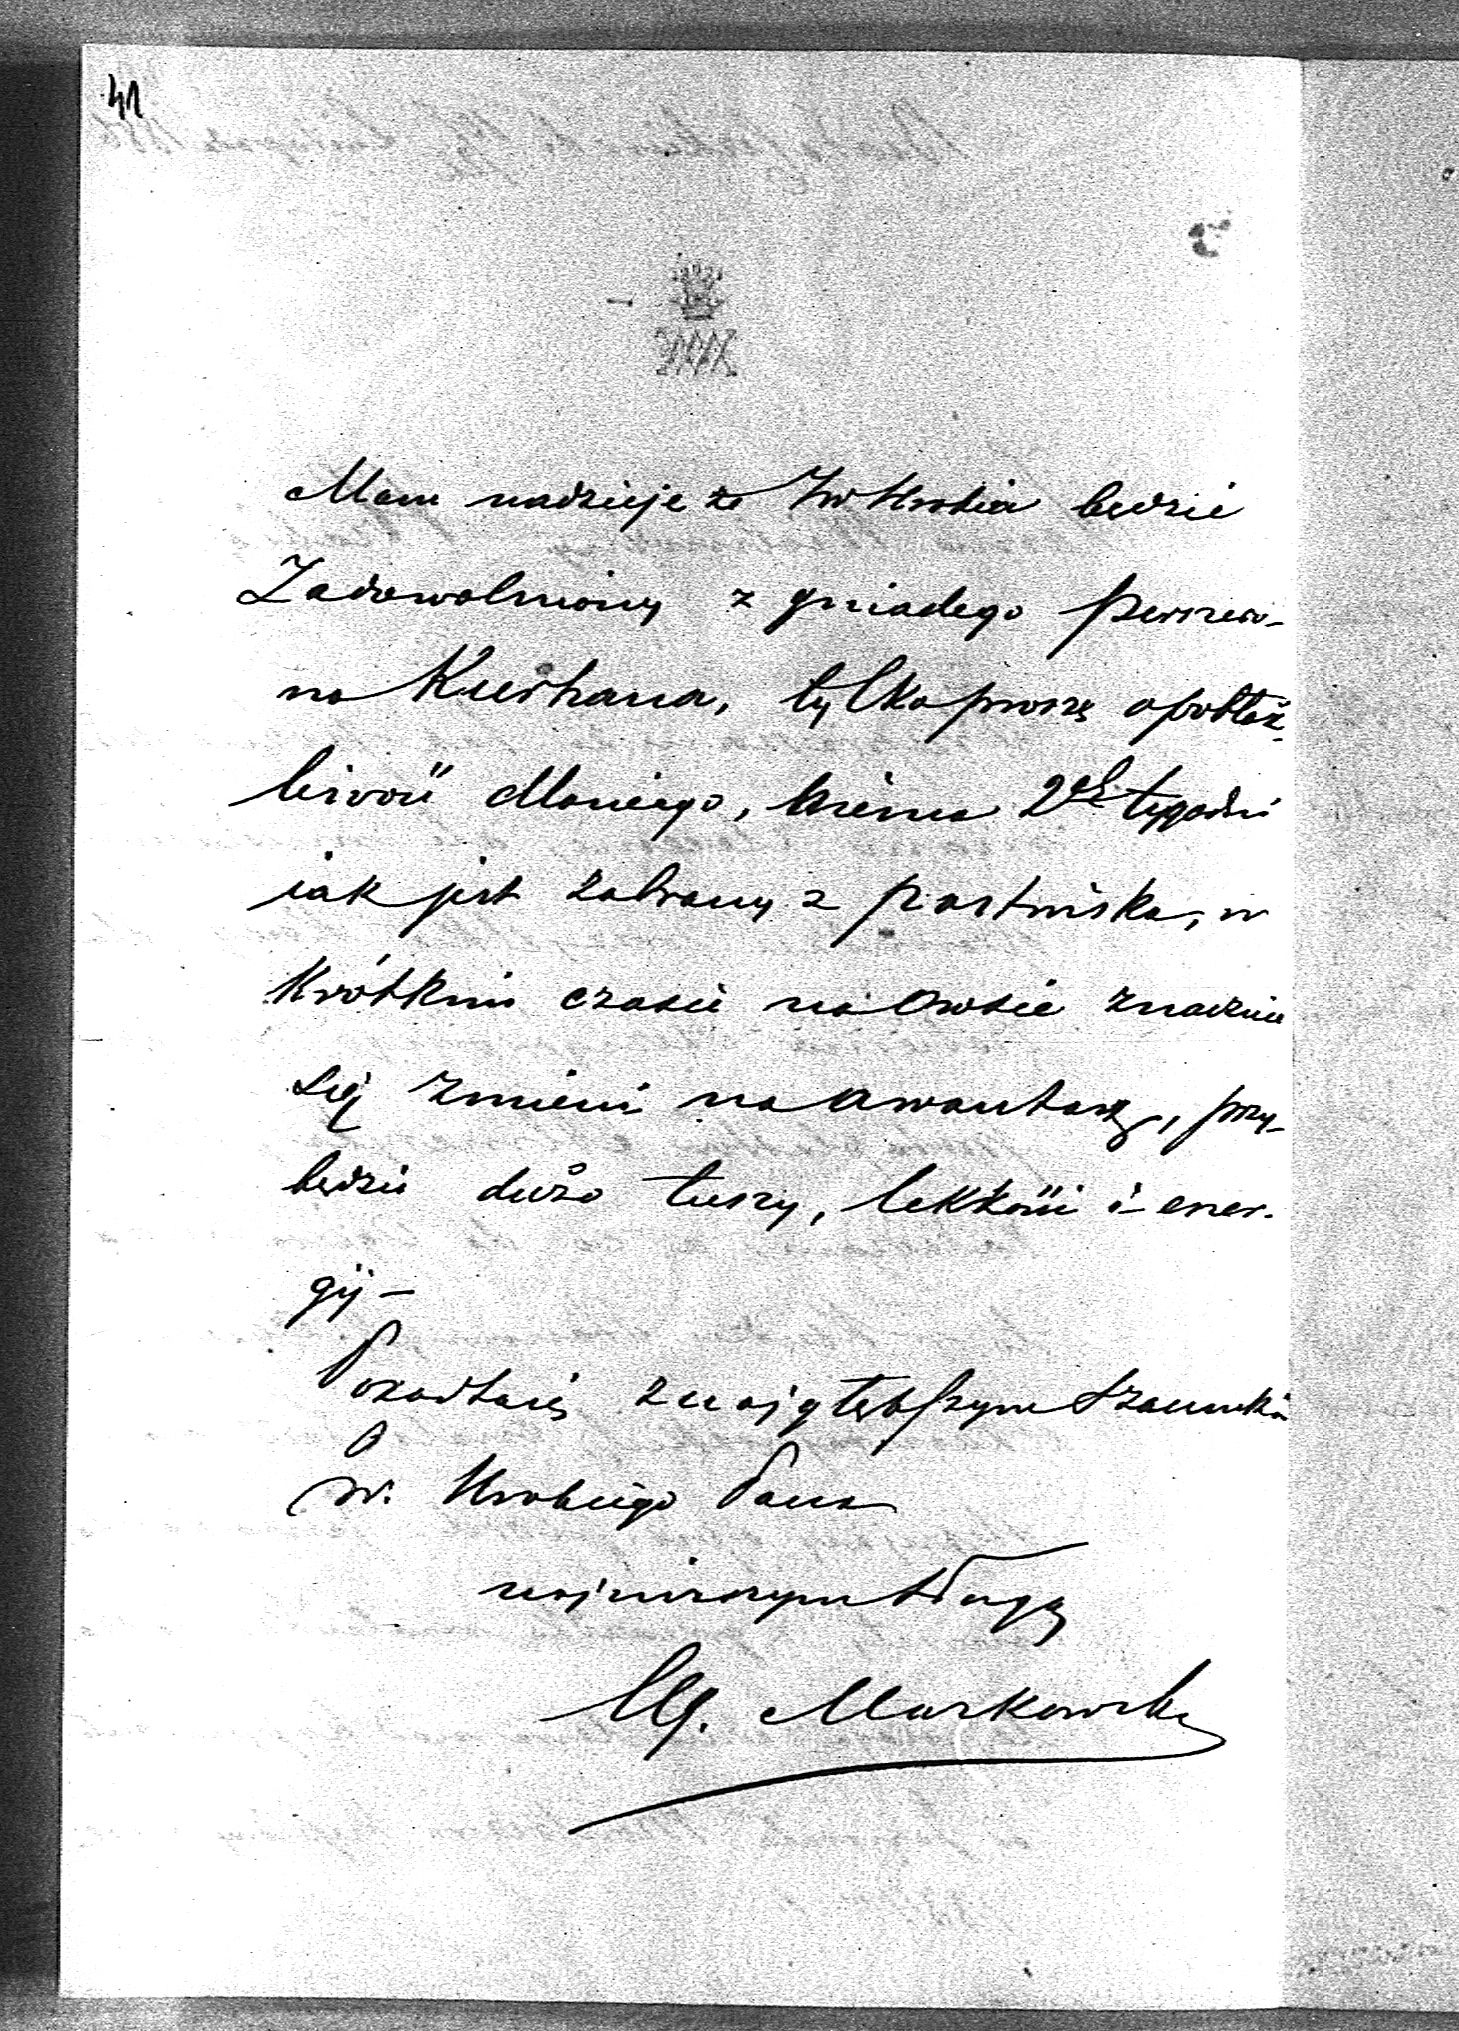 41
Mam nadzieje że JW Hrabia będzie
Zadowolniony z gniadego
na Kurhana, tylko proszę o pobłaż-
liwość dla niego, niema 2ch tygodni
iak jest zabrany z pastwiska, w
Krótkim czasie na Owsie znacznie
się zmieni na awantarz, przy-
będzie dużo tuszy, lekkości i ener-
gij –
Pozostaię z najgłębszym szacunkiem
JW. Hrabiego Pana
najniższym sługą
M. Markowski